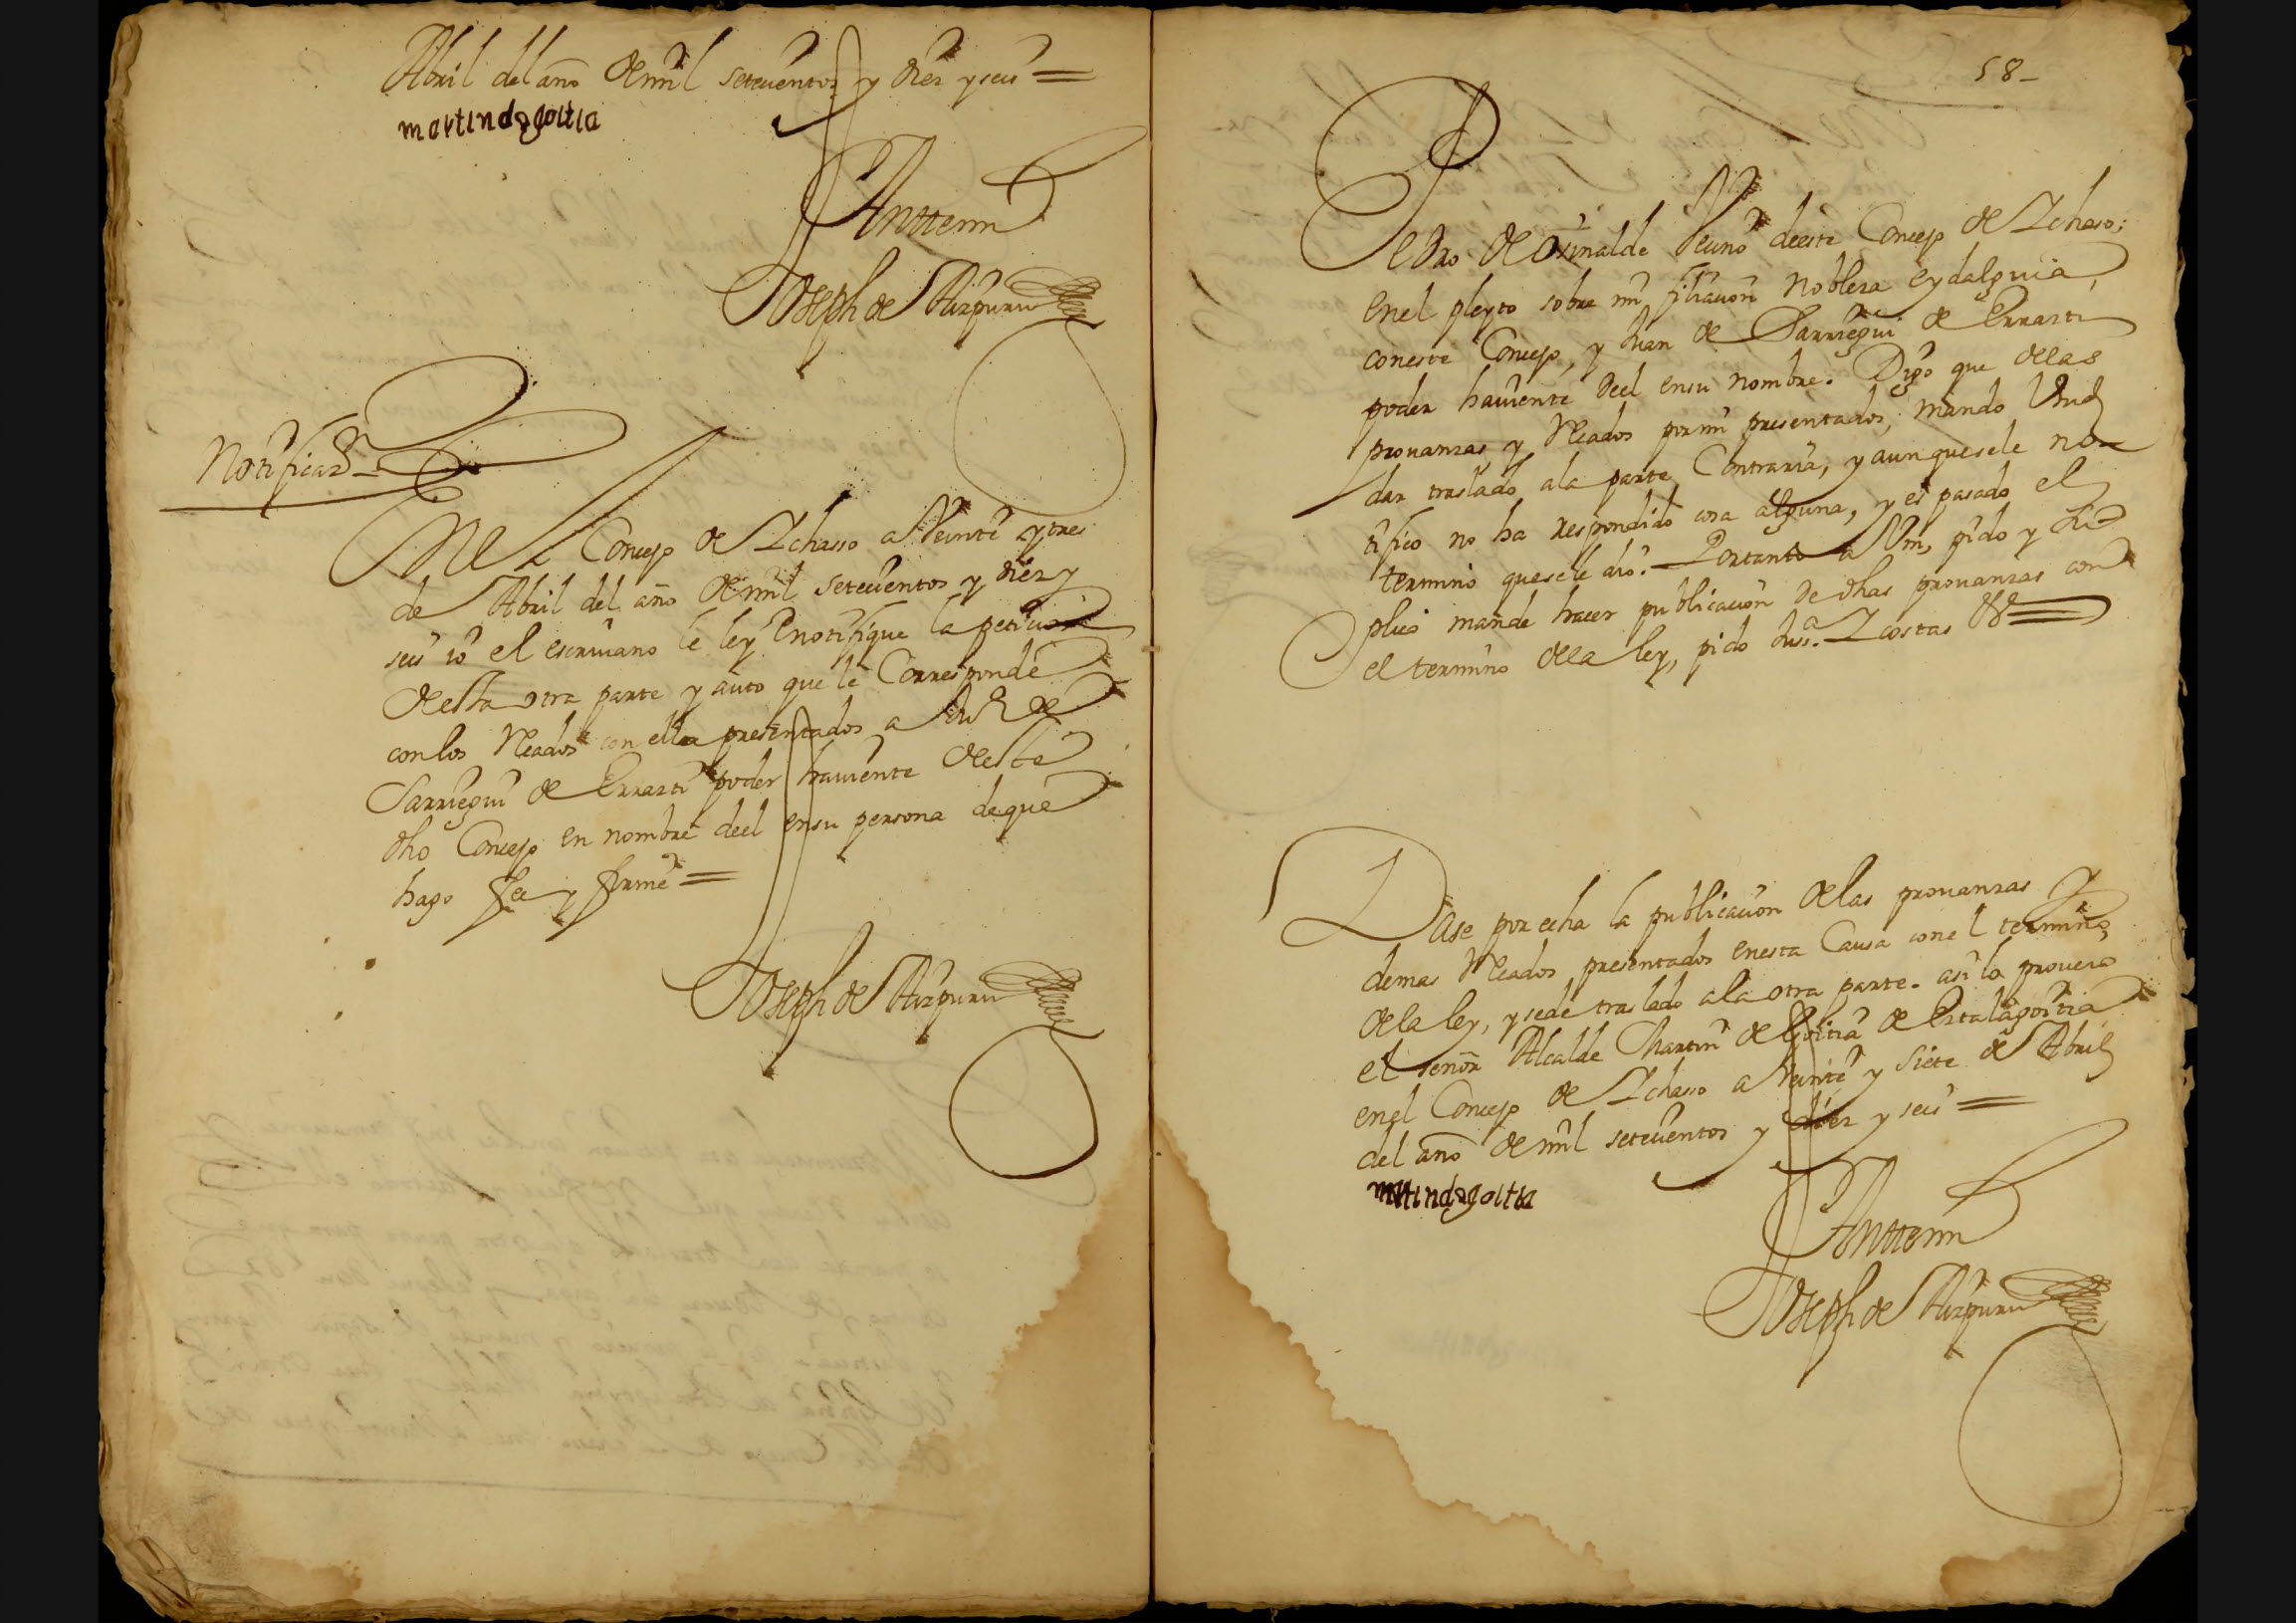 Abril del año de mil setecientos y diez y seis =
martin de goitia
Ante mi
Joseph de Aizpuru
Notificaon
En el Concejo de Ichasso a Veinte y tres
de Abril del año de mil setecientos y diez y
seis yo el escriuano le ley e notifique la peticion
de esta otra parte y auto que le Corresponde
con los Recados con ella presentados a Juan de
Sarriegui de Errazti poder hauiente de este
dho Concejo en nombre deel en su persona de que
hago fee y firme =
Joseph de Aizpuru
58_
Pedro de Orinalde Vecino deeste Concejo de Ichaso;
en el pleyto sobre mi filiacion nobleza e ydalguia,
con este Concejo, y Juan de Sarriegui de Errazti
poder hauiente deel en su nombre. Digo que de las
prouanzas y Recados por mi presentados, mando Vmd
dar traslado a la parte Contraria, y aunque se le no
tifico no ha respondido cosa alguna, y es pasado el
termino que se le dio. Portanto a Vm, pido y su
plico mande hacer publicacion de dhas prouanzas con
el termino de la ley, pido Jusa. I costas &a =
Dase por echa la publicacion de las prouanzas y
demas Recados presentados en esta Causa con el termino
de la ley, y se de traslado a la otra parte. asi lo proueyo
el señor Alcalde Martin de Goitia de Estalagoitia
en el Concejo de Ichasso a Veinte y siete de Abril
del año de mil setecientos y diez y seis =
martin de goitia
Ante mi
Joseph de Aizpuru